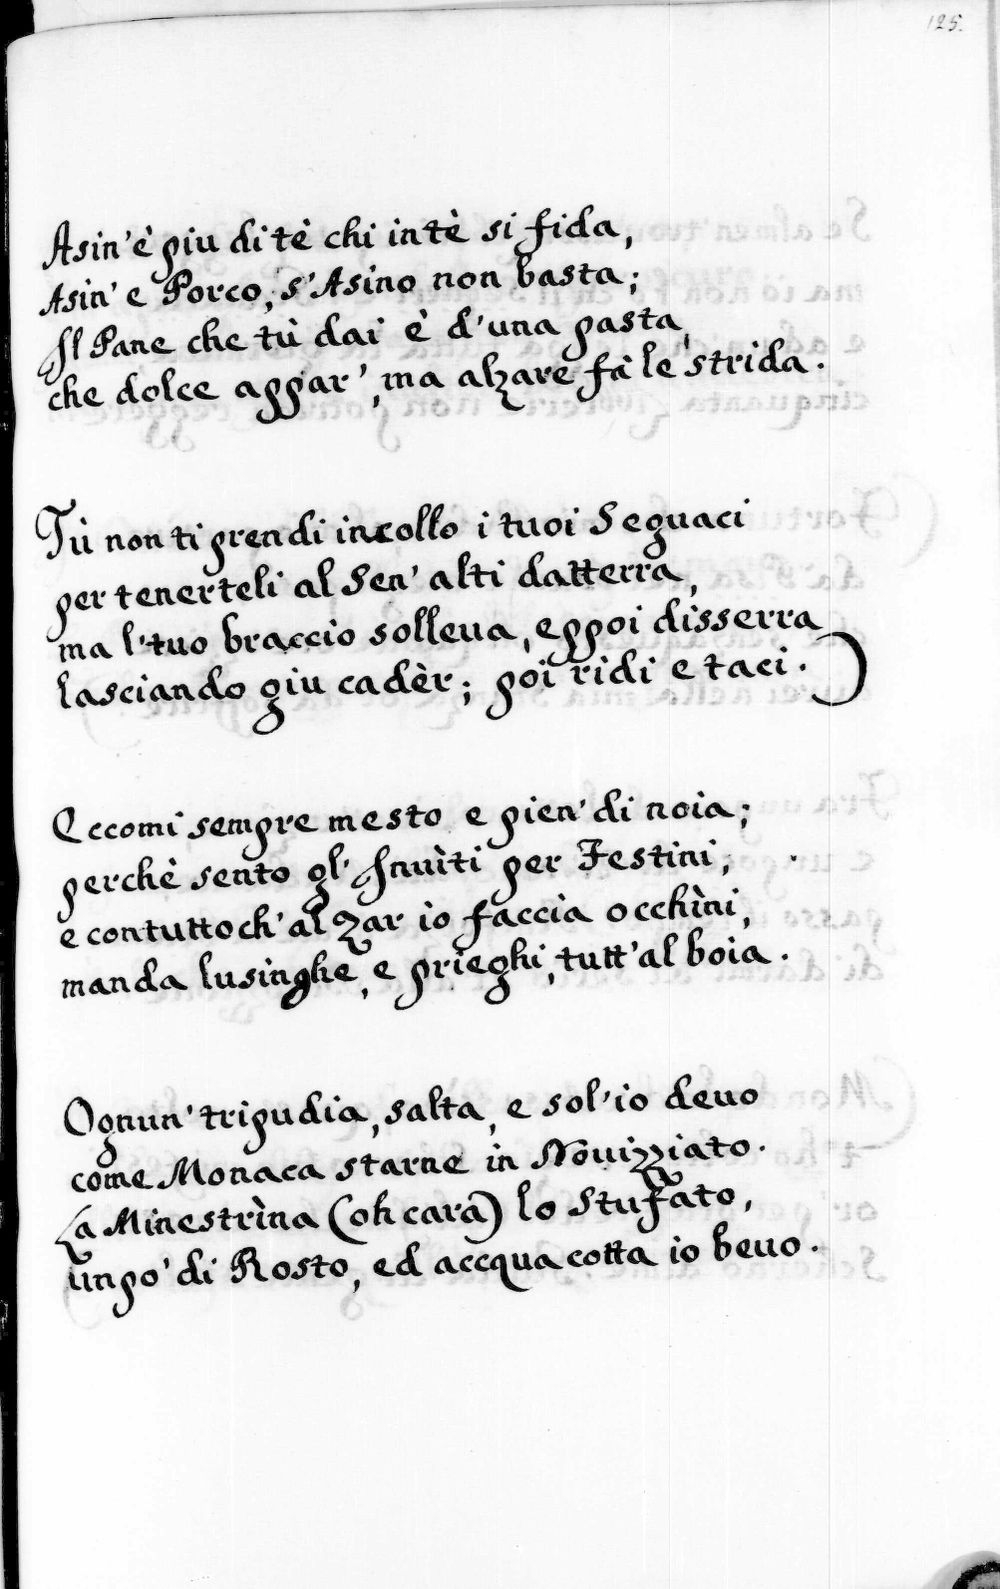 125.
Asin' è piu di tè chi in tè si fida,
Asin' e Porco, s'Asino non basta;
Il Pane che tù dai è d'una pasta,
che dolce appar', ma alzare fà le strida.
Tù non ti prendi in collo i tuoi Seguaci
per tenerteli al Sen' alti datterra,
ma l'tuo braccio solleua, eppoi disserra
lasciando giu cadèr; poi ridi e taci.
Eccomi sempre mesto e pien' di noia;
perchè sento gl' Inuìti per Festini,
e contuttoch' alzar io faccia occhìni,
manda lusinghe, e prieghi, tutt'al boia.
Ognun' tripudia, salta, e sol'io deuo
come Monaca starne in Nouizziato.
La Minestrìna (oh cara) lo Stufato,
un po' di Rosto, ed accqua cotta io beuo.